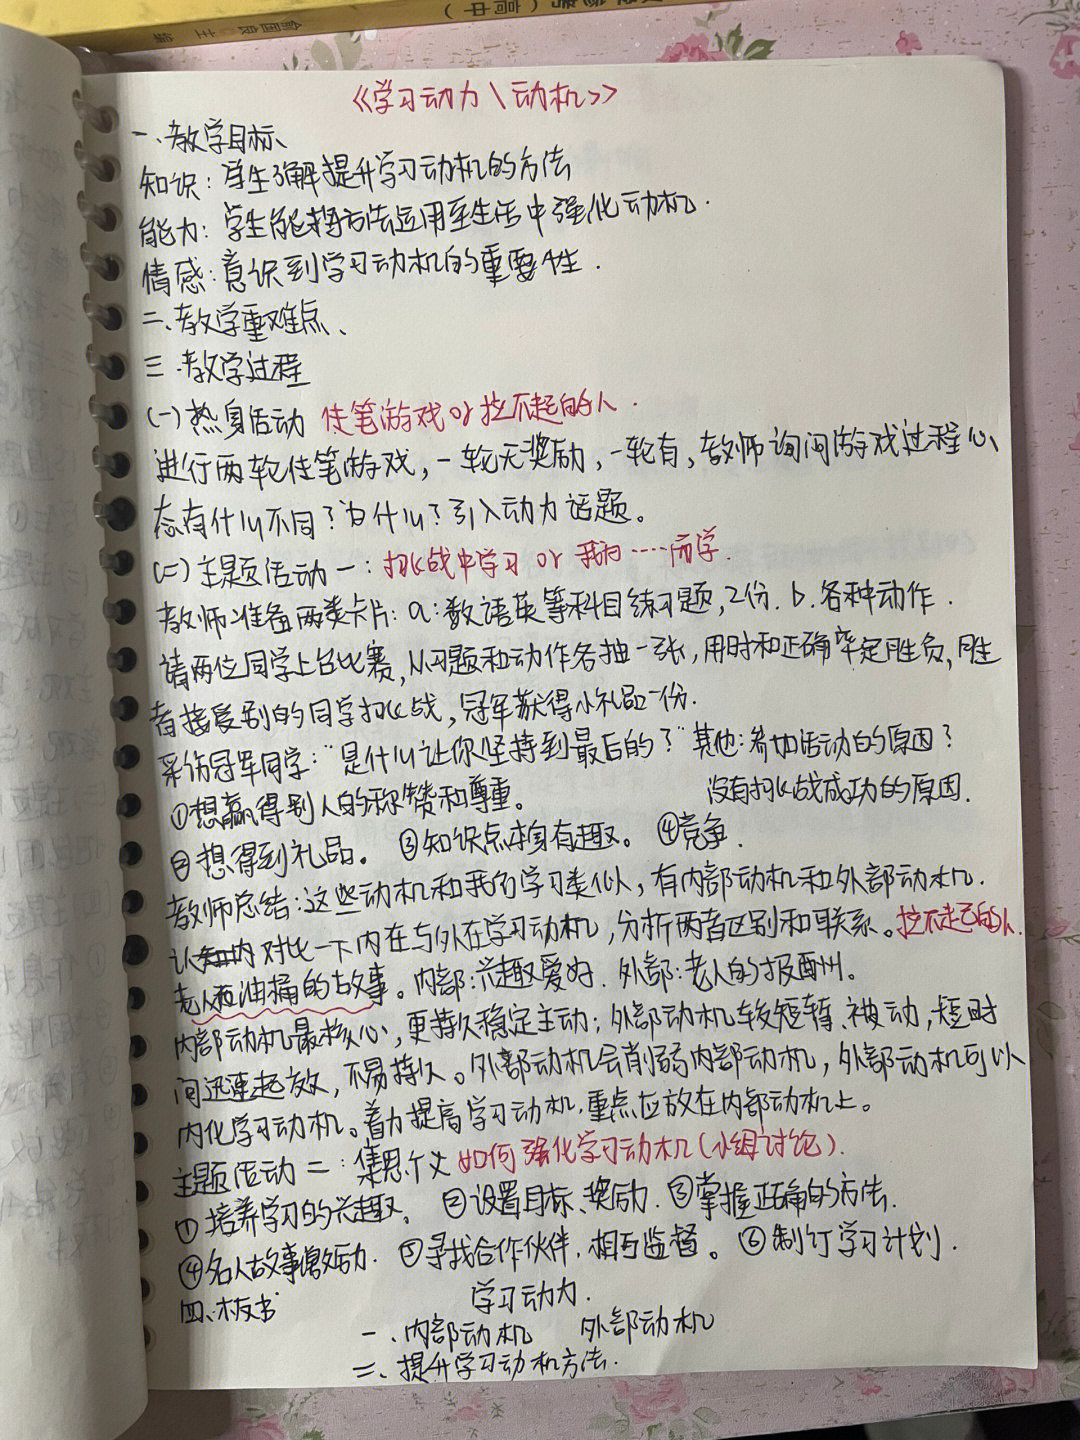 俞国良 主编
(高中)
《学习动力\动机》
一、教学目标、
知识：学生了解提升学习动机的方法
能力：学生能将方法运用至生活中强化动机.
情感：意识到学习动机的重要性.
二、教学重难点、
三.教学过程
(一)热身活动 传笔游戏or拉不起的人.
进行两轮传笔游戏,一轮无奖励,一轮有,教师询问游戏过程心
态有什么不同？为什么？引入动力话题。
(二)主题活动一：挑战中学习 or 我为……而学.
教师准备两类卡片：a：数语英等科目练习题,2份. b.各种动作.
请两位同学上台比赛,从习题和动作各抽一张,用时和正确率定胜负,胜
者接受别的同学挑战,冠军获得小礼品一份.
采访冠军同学："是什么让你坚持到最后的？"其他：参加活动的原因？
①想赢得别人的称赞和尊重。 没有挑战成功的原因.
②想得到礼品。 ③知识点本身有趣。 ④竞争.
教师总结：这些动机和我们学习类似,有内部动机和外部动机.
对比一下内在与外在学习动机,分析两者区别和联系。拉不起的人.
老人和油桶的故事。内部：兴趣爱好. 外部：老人的报酬。
内部动机最核心,更持久稳定主动；外部动机较短暂、被动,短时
间迅速起效,不易持久。外部动机会削弱内部动机,外部动机可以
内化学习动机。着力提高学习动机,重点应放在内部动机上。
主题活动二：集思广义 如何强化学习动机(小组讨论).
①培养学习的兴趣、 ②设置目标、奖励. ③掌握正确的方法.
④名人故事激励. ⑤寻找合作伙伴,相互监督。 ⑥制订学习计划.
四、板书
学习动力.
一、内部动机 外部动机
二、提升学习动机方法.